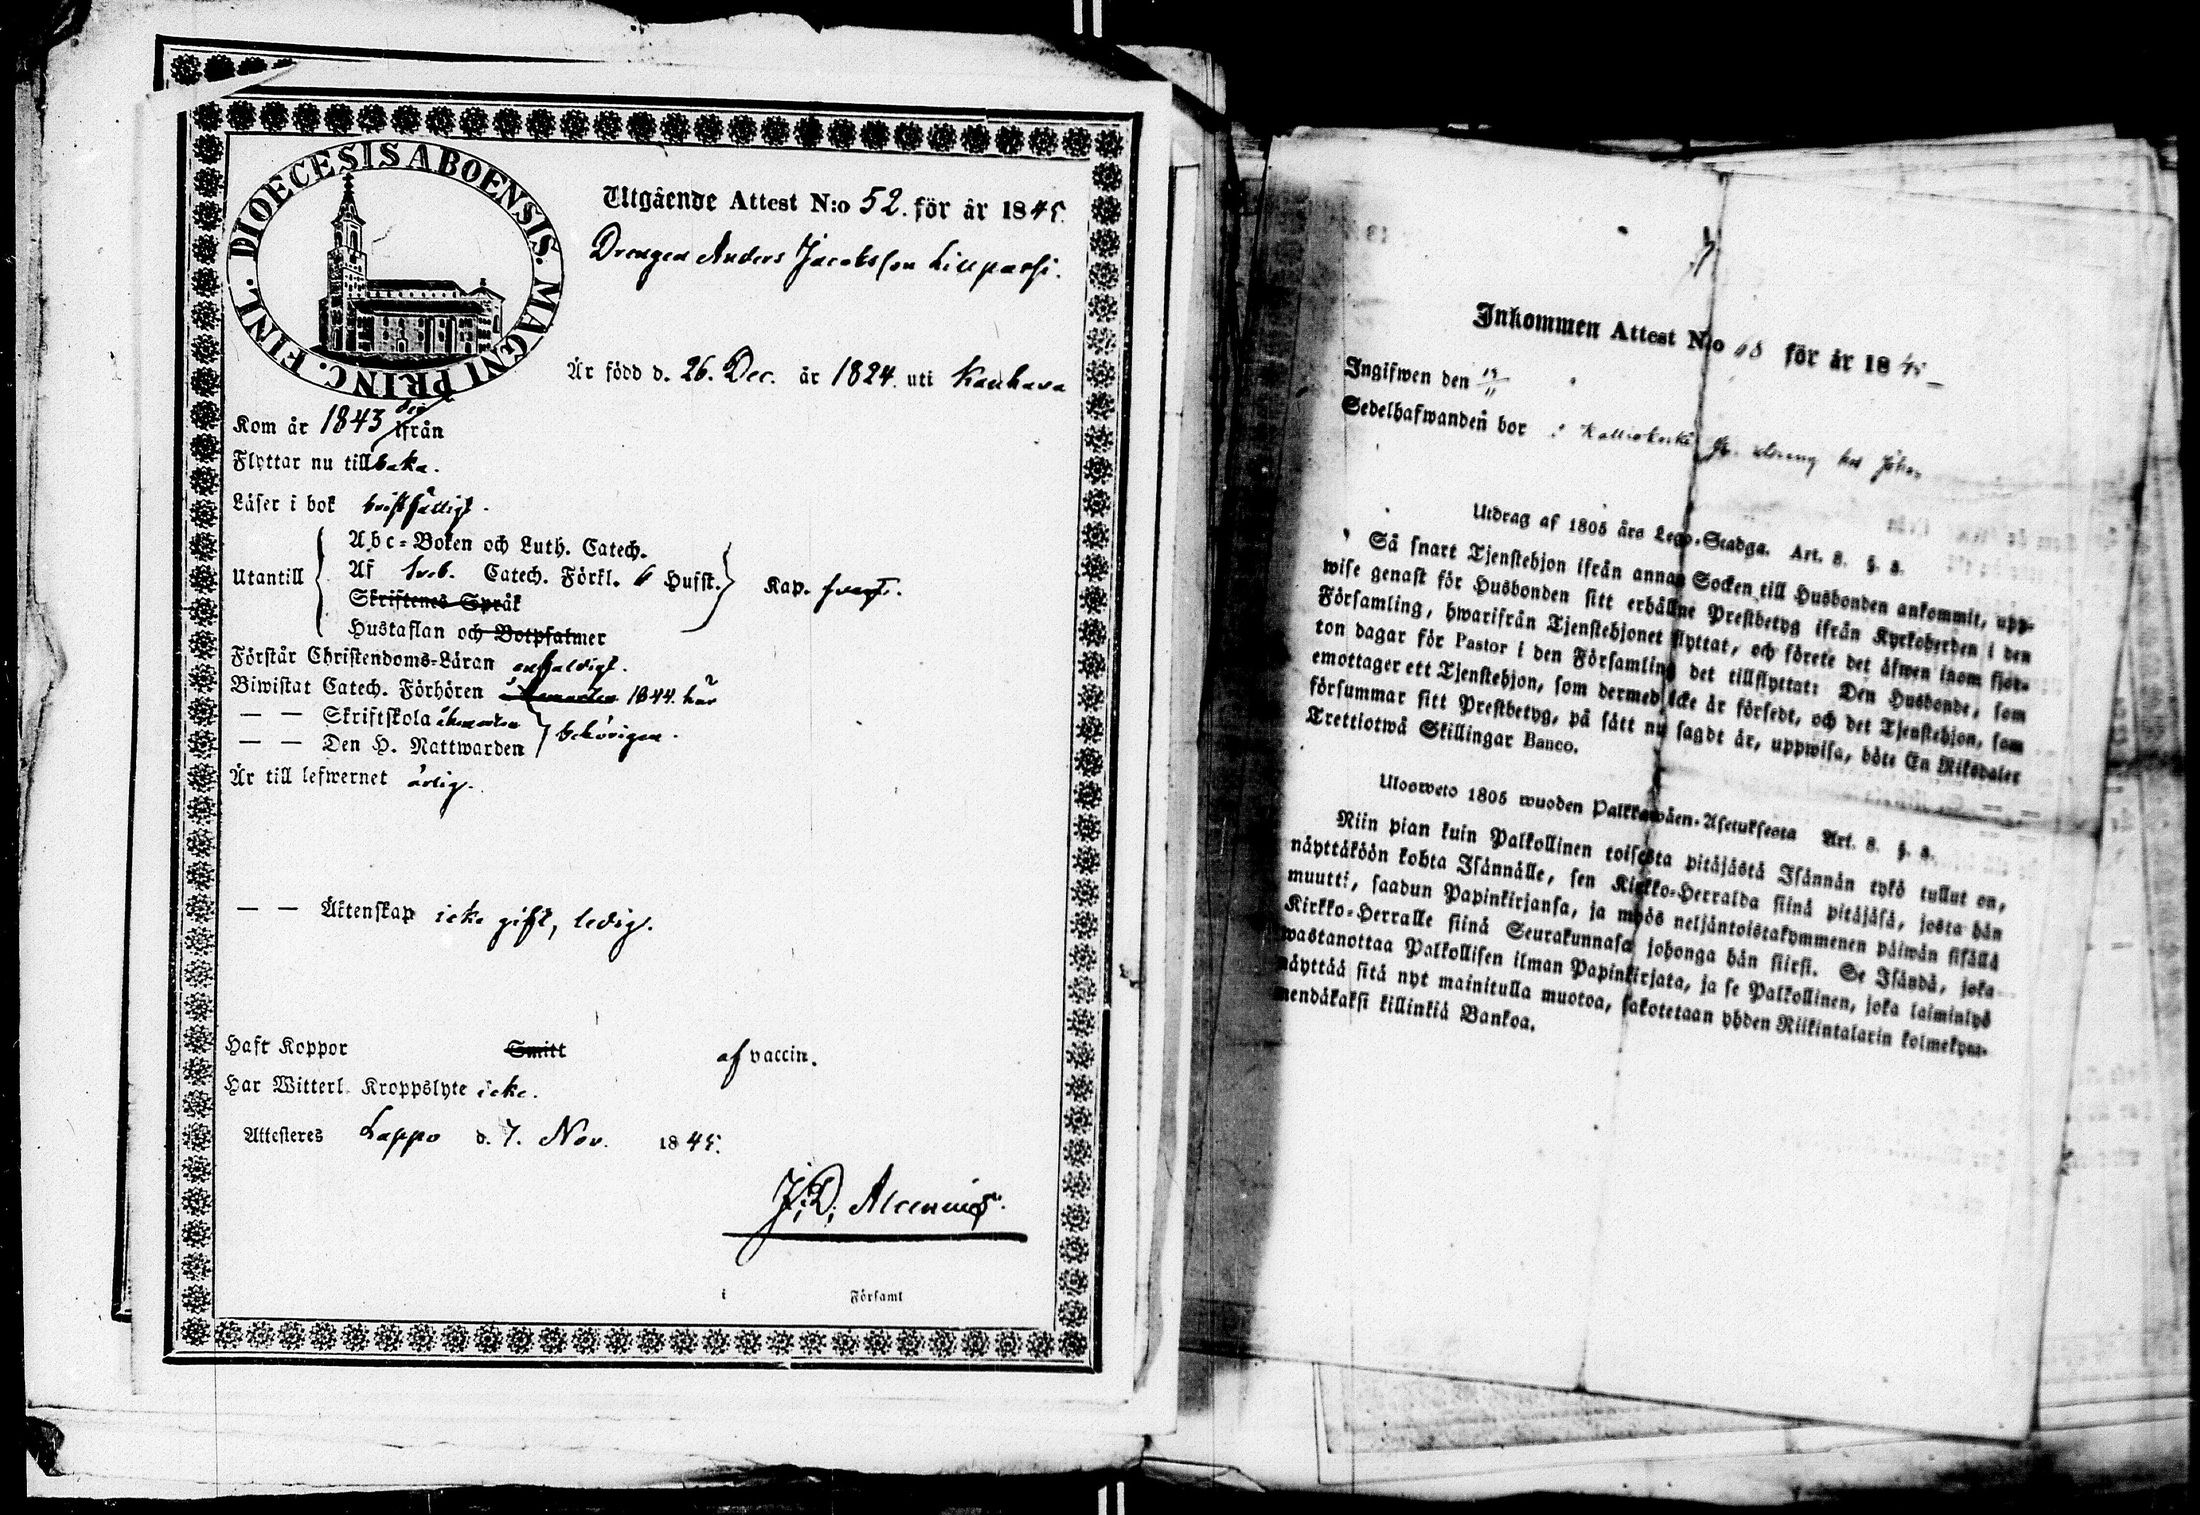 DIOECESIS ABOENSIS. MAGNI PRINC. FINL.
Utgående Attest N:o 52. för år 1845.
Drengen Anders Jacobsson Lillpassi.
Är född d. 26. Dec. år 1824. uti Kauhava
Kom år 1843 ifrån
Flyttar nu tillbaka.
Läser i bok bristfälligt.
Abc-Boken och Luth. Catech.
Utantill Af Sveb. Catech. Förkl. 6 Hufst. Kap. svagt.
Skriftenes Språk
Hustaflan och Botpsalmer
Förstår Christendoms-Läran enfaldigt.
Biwistat Catech. Förhören 1844. här
— — Skriftskola
— — Den H. Nattwarden behörigen.
Är till lefwernet ärlig.
— — Äktenskap icke gift, ledig.
Haft Koppor Smitt af vaccin.
Har Witterl. Kroppslyte icke.
Attesteres Lappo d. 7. Nov. 1845.
J. D. Alcenius.
i Församl
Inkommen Attest N:o för år 1845
Ingifwen den 19/11
Sedelhafwanden bor i dreng hos Johan
Utdrag af 1805 års Lego-Stadga. Art. 8. §. 8.
Så snart Tjenstehjon ifrån annan Socken till Husbonden ankommit, upp-
wise genast för Husbonden sitt erhållne Prestbetyg ifrån Kyrkoherden i den
Församling, hwarifrån Tjenstehjonet flyttat, och förete det äfwen inom fjor-
ton dagar för Pastor i den Församling det tillflyttat: Den Husbonde, som
emottager ett Tjenstehjon, som dermed icke är försedt, och det Tjenstehjon, som
försummar sitt Prestbetyg, på sätt nu sagdt är, uppwisa, böte En Riksdaler
Trettiotwå Skillingar Banco.
Uloosweto 1805 wuoden Palkkawäen-Asetuksesta Art. 8. §. 8.
Niin pian kuin Palkollinen toisesta pitäjästä Isännän tykö tullut on,
näyttäköön kohta Isännälle, sen Kirkko-Herralda siinä pitäjäsä, josta hän
muutti, saadun Papinkirjansa, ja myös neljäntoistakymmenen päiwän sisällä
Kirkko-Herralle siinä Seurakunnasa johonga hän siirsi. Se Isändä, joka
wastanottaa Palkollisen ilman Papinkirjata, ja se Palkollinen, joka laiminlyö
näyttää sitä nyt mainitulla muotoa, sakotetaan yhden Riikintalarin kolmekym-
mendäkaksi killinkiä Bankoa.